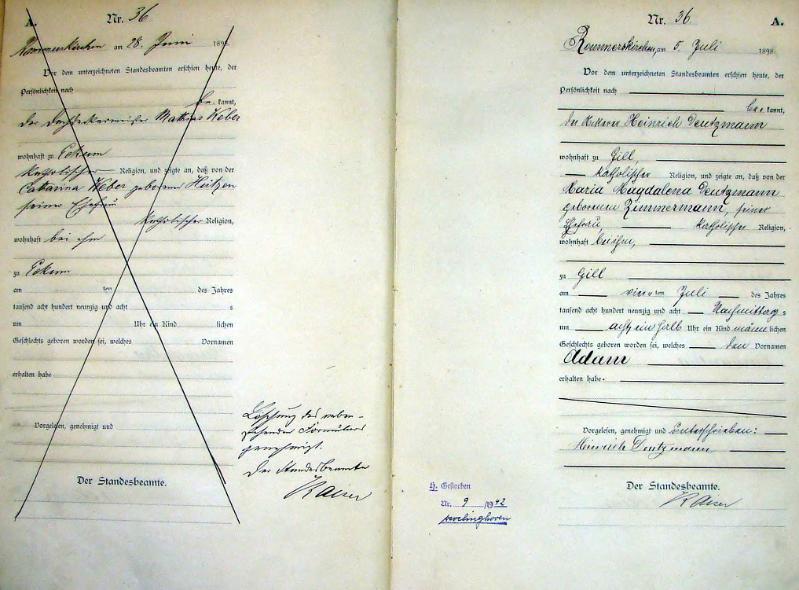 A.
Nr. 36
Rommerskirchen am 28. Juni 189
Vor dem unterzeichneten Standesbeamten erschien heute, der
Persönlichkeit nach
be kannt,
der Dachdeckermeister Mathias Weber
wohnhaft zu Eckum
katholischer Religion, und zeigte an, daß von der
Catharina Weber geborenen
seiner Ehefrau
katholischer Religion,
wohnhaft bei ihm
zu Eckum
am ten des Jahres
tausend acht hundert neunzig und acht s
um Uhr ein Kind lichen
Geschlechts geboren worden sei, welches Vornamen
erhalten habe
Vorgelesen, genehmigt und
Der Standesbeamte.
Löschung des neben-
stehenden Formulars
genehmigt.
Der Standesbeamte
Kaiser
Nr. 36
A.
Rommerskirchen, am 5. Juli 189
Vor dem unterzeichneten Standesbeamten erschien heute, der
Persönlichkeit nach
be kannt,
der Heinrich Deutzmann
wohnhaft zu Gill,
katholischer Religion, und zeigte an, daß von der
Maria Magdalena Deutzmann
geborenen Zimmermann, seiner
Ehefrau, katholischer Religion,
wohnhaft bei ihm,
zu Gill
am vier ten Juli des Jahres
tausend acht hundert neunzig und acht Nachmittag s
um acht ein halb Uhr ein Kind männ lichen
Geschlechts geboren worden sei, welches den Vornamen
Adam
erhalten habe.
Vorgelesen, genehmigt und unterschrieben:
Heinrich Deutzmann
Der Standesbeamte.
Kaiser
Gestorben
Nr. 9 /1942